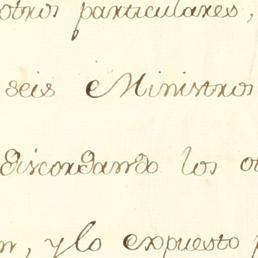 otros particulares,
seis Ministros
discordando los
, y lo expuesto